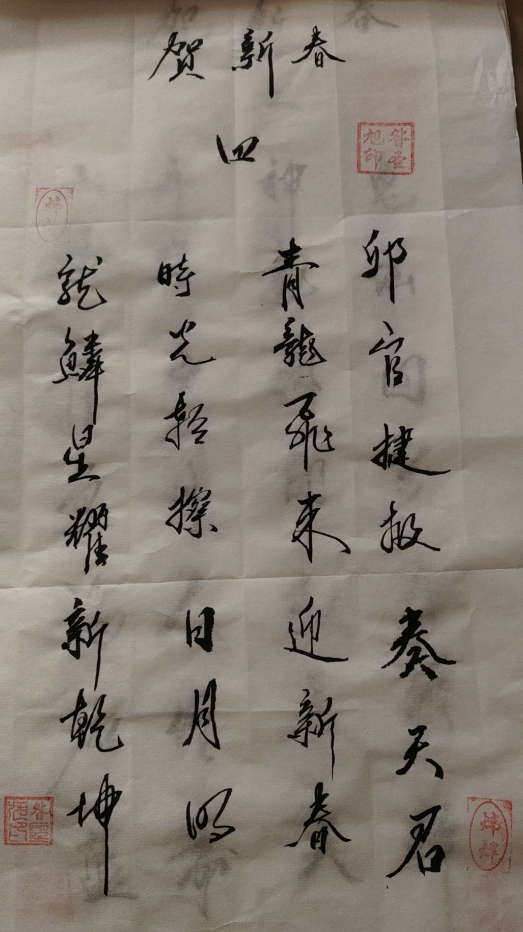 贺新春
四
卯官捷报奏天君
青龙飛来迎新春
時光轻擦日月明
龙鳞星耀新乾坤